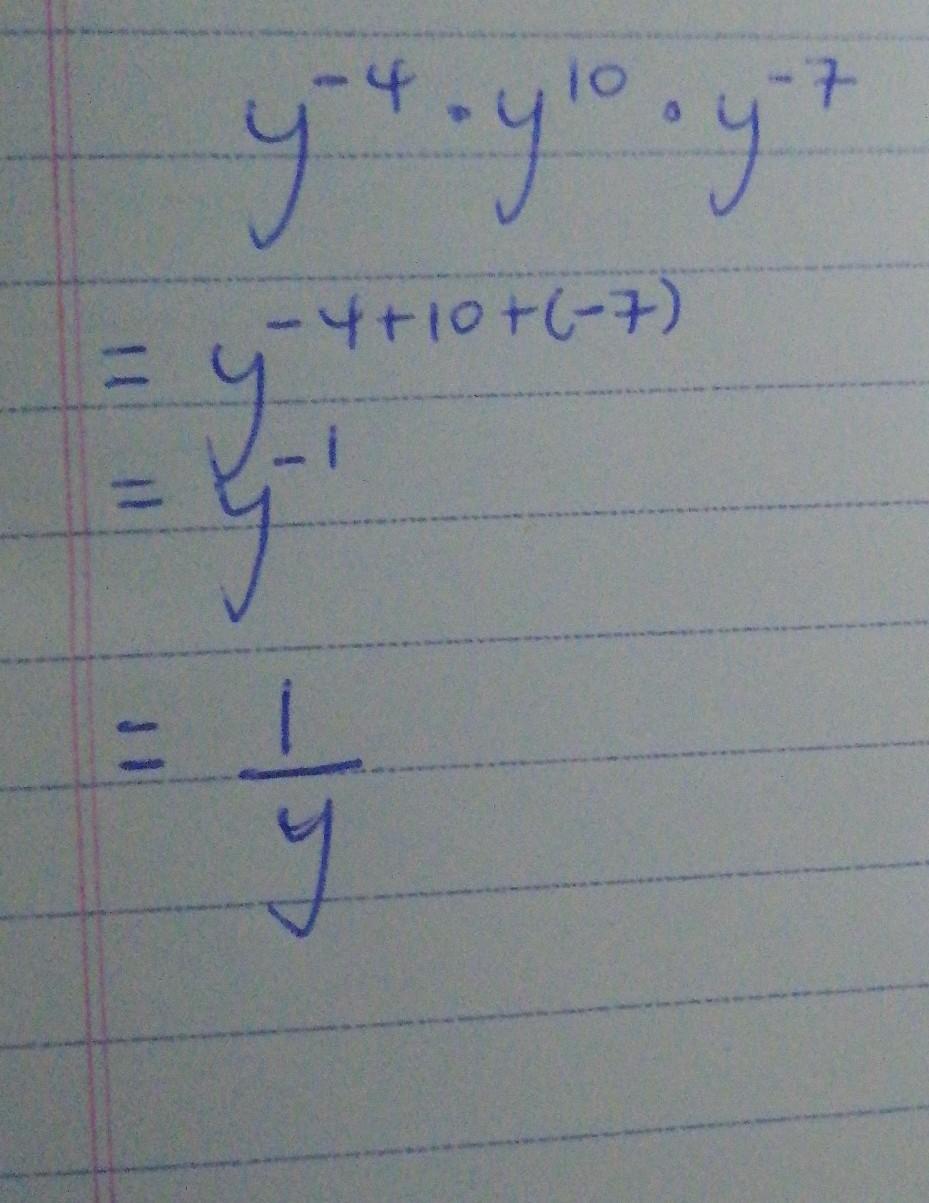 y⁻⁴ · y¹⁰ · y⁻⁷
= y⁻⁴⁺¹⁰⁺⁽⁻⁷⁾
= y⁻¹
= 1/y